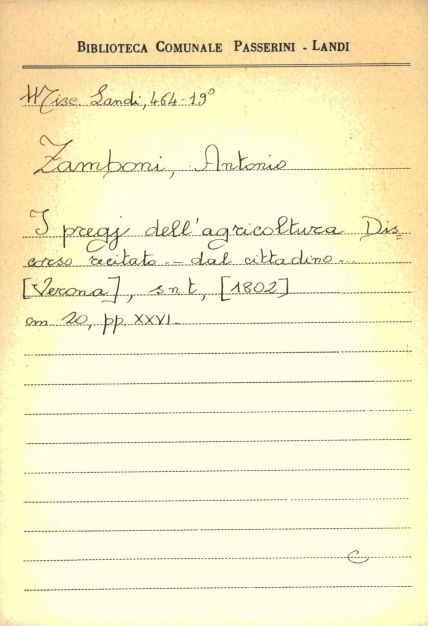 BIBLIOTECA COMUNALE PASSERINI - LANDI
Misc. Landi, 464-19°
Zamboni, Antonio
I pregj dell'agricoltura Dis=
corso recitato -- dal cittadino ...
[Verona], s n t, [1802]
cm 20, pp. XXVI.
C